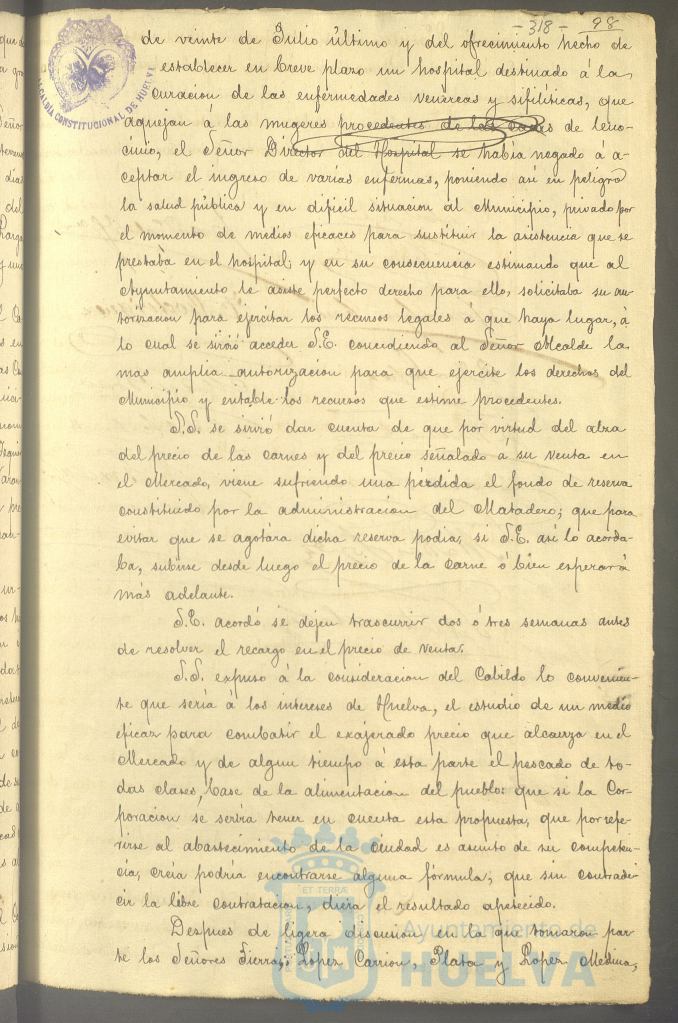 - 318 - 98
ALCALDIA CONSTITUCIONAL DE HUELVA
de veinte de Julio último y del ofrecimiento hecho de
establecer en breve plazo un hospital destinado á la
curacion de las enfermedades venéreas y sifilíticas, que
aquejan á las mugeres procedentes de las casas de leno-
cinio, el Señor Director del Hospital se había negado á a-
ceptar el ingreso de varias enfermas, poniendo asi en peligro
la salud pública y en dificil situacion al Municipio, privado por
el momento de medios eficaces para sustituir la asistencia que se
prestaba en el hospital; y en su consecuencia estimando que al
Ayuntamiento le asiste perfecto derecho para ello, solicitaba su au-
torizacion para ejercitar los recursos legales á que haya lugar, á
lo cual se sirvió acceder S.E. concediendo al Señor Alcalde la
mas amplia autorizacion para que ejercite los derechos del
Municipio y entable los recursos que estime procedentes.
S.S. se sirvió dar cuenta de que por virtud del alza
del precio de las carnes y del precio señalado á su venta en
el Mercado, viene sufriendo una pérdida el fondo de reserva
constituido por la administracion del Matadero; que para
evitar que se agotára dicha reserva podia, si S.E. asi lo acorda-
ba, subirse desde luego el precio de la carne ó bien esperar á
más adelante.
S.E. acordó se dejen trascurrir dos ó tres semanas antes
de resolver el recargo en el precio de venta.
S.S. expuso á la consideracion del Cabildo lo convenien-
te que sería á los intereses de Huelva, el estudio de un medio
eficaz para combatir el exajerado precio que alcanza en el
Mercado y de algun tiempo á esta parte el pescado de to-
das clases, base de la alimentacion del pueblo: que si la Cor-
poracion se servia tener en cuenta esta propuesta, que por refe-
rirse al abastecimiento de la Ciudad es asunto de su competen-
cia, creía podría encontrarse alguna fórmula, que sin contrade-
cir la libre contratacion, diera el resultado apetecido.
Despues de ligera discusion en la que tomaron par-
te los Señores Sierra, Lopez Carrion, Plata y Lopez Medina,
ET TERRÆ
Ayuntamiento de
HUELVA